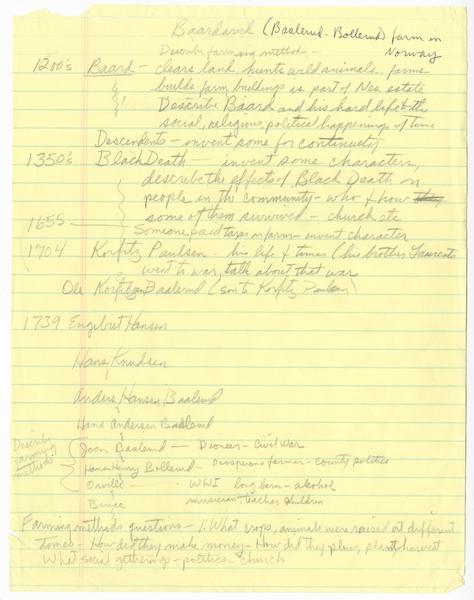 Baardsrud (Baalerud-Bollerud) farm in
Norway
Describe farming methods -
1200's Baard - clears land, hunts wild animals, farms
builds farm buildings is part of Nes estate
Describe Baard and his hard life & the
social, religious, political happenings of time
Descendents - invent some for continuity
1350's Black Death - invent some characters,
describe the effects of Black Death on
people in the community - who & how they
some of them survived - church etc
1655 Someone paid taxes on farm - invent character
1704 Korfitz Paulsen - his life & times (his brother Laurents
went to war, talk about that war
Ole Korfitzen Baalerud (son to Korfitz Paulsen)
1739 Engebret Hansen
Hans Knudsen
Anders Hansen Baalerud
Hans Andersen Baalerud
Describe farming methods
Joon Baalerud - Pioneer - Civil War
Hans Henry Bollerud - prosperous farmer - county politics
Orville - WWI long barn - alcohol
Bruce musician teacher children
Farming methods questions - 1. What crops, animals were raised at different
times - How did they make money - How did they plow, plant, harvest
What social gatherings - politics - church